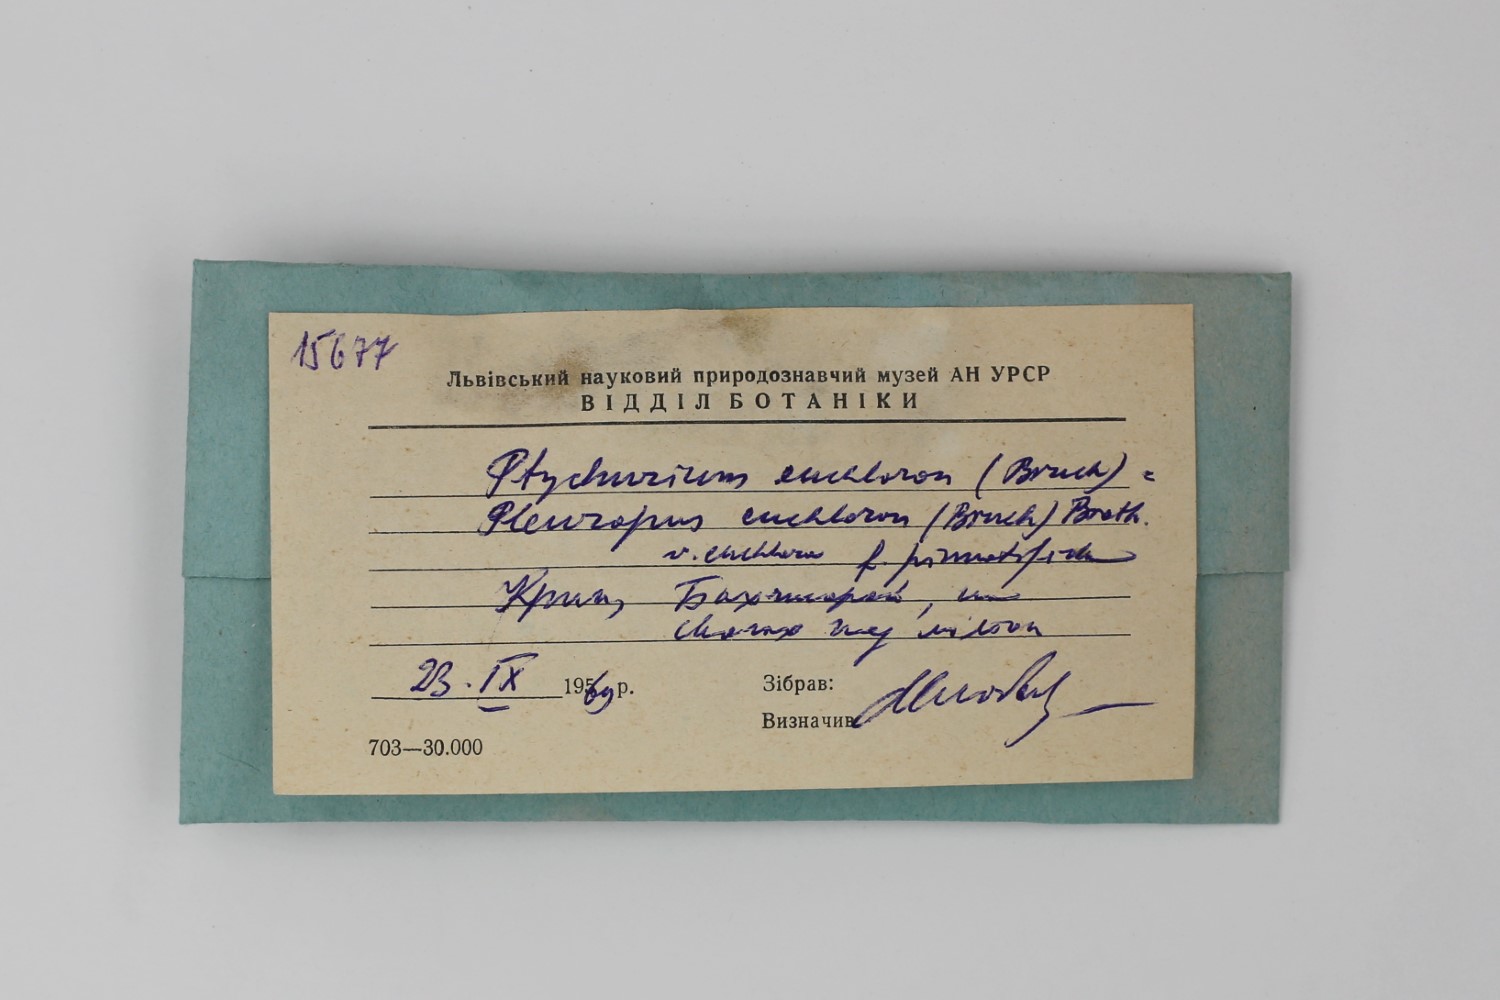 15677
Львівський науковий природознавчий музей АН УРСР
ВІДДІЛ БОТАНІКИ
Ptychurium euchloron (Bruch) =
Pleuropus euchloron (Bruch) Broth.
v. euchlora f. pinnatifida
Крим, Бахчисарай, на
скелах над містом
23.IX 1969 р.
Зібрав:
Визначив
703—30.000